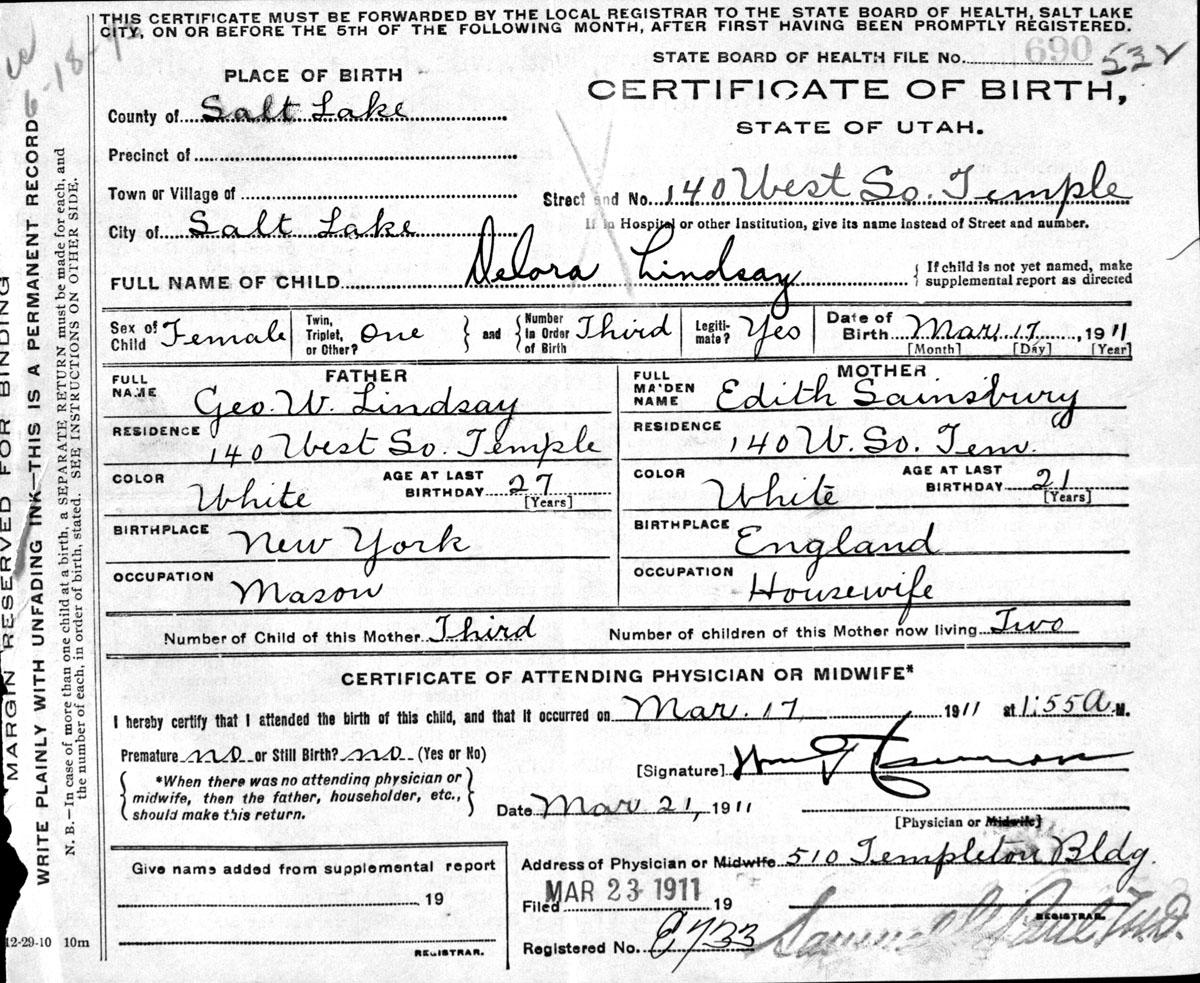 THIS CERTIFICATE MUST BE FORWARDED BY THE LOCAL REGISTRAR TO THE STATE BOARD OF HEALTH, SALT LAKE
CITY, ON OR BEFORE THE 5TH OF THE FOLLOWING MONTH, AFTER FIRST HAVING BEEN PROMPTLY REGISTERED.
STATE BOARD OF HEALTH FILE No. 690 532
PLACE OF BIRTH
CERTIFICATE OF BIRTH,
STATE OF UTAH.
County of Salt Lake
Precinct of
Town or Village of
Street and No. 140 West So. Temple
City of Salt Lake
If in Hospital or other Institution, give its name instead of Street and number.
FULL NAME OF CHILD Delora Lindsay
{ If child is not yet named, make
supplemental report as directed
Sex of Child Female
Twin, Triplet, or Other? One
} and {
Number in Order of Birth Third
Legiti-mate? Yes
Date of Birth Mar. 17, 1911
[Month] [Day] [Year]
FATHER
FULL NAME Geo. W. Lindsay
RESIDENCE 140 West So. Temple
COLOR White AGE AT LAST BIRTHDAY 27 [Years]
BIRTHPLACE New York
OCCUPATION Mason
MOTHER
FULL MAIDEN NAME Edith Sainsbury
RESIDENCE 140 W. So. Tem.
COLOR White AGE AT LAST BIRTHDAY 21 [Years]
BIRTHPLACE England
OCCUPATION Housewife
Number of Child of this Mother Third Number of children of this Mother now living Two
CERTIFICATE OF ATTENDING PHYSICIAN OR MIDWIFE*
I hereby certify that I attended the birth of this child, and that it occurred on Mar. 17, 1911 at 1:55 A M.
Premature no or Still Birth? no (Yes or No)
*When there was no attending physician or
midwife, then the father, householder, etc.,
should make this return.
[Signature] Wm
Date Mar 21, 1911
[Physician or Midwife]
Address of Physician or Midwife 510 Templeton Bldg.
Give name added from supplemental report
19
REGISTRAR.
Filed MAR 23 1911 19
Samuel G Paul M.D.
REGISTRAR.
Registered No. E733
12-29-10 10m
MARGIN RESERVED FOR BINDING
WRITE PLAINLY WITH UNFADING INK—THIS IS A PERMANENT RECORD
N. B.—In case of more than one child at a birth, a SEPARATE RETURN must be made for each, and
the number of each, in order of birth, stated. SEE INSTRUCTIONS ON OTHER SIDE.